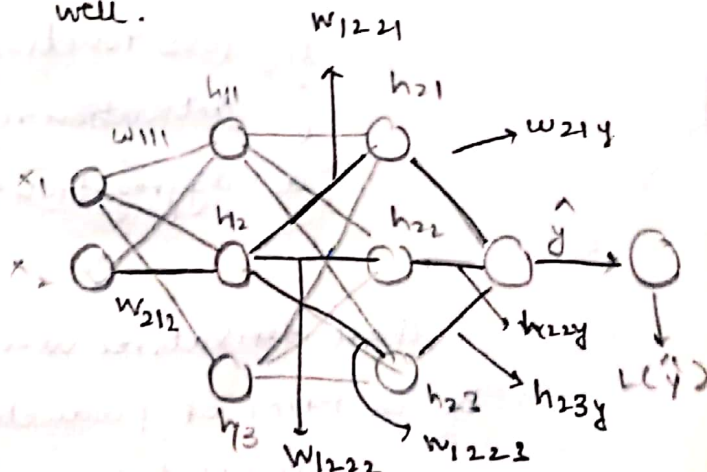 well.
w1221
h11
h21
w111
w21y
x1
h2
h22
ŷ
x2
w212
h22y
h23y
L(ŷ)
h3
h23
w1222
w1223